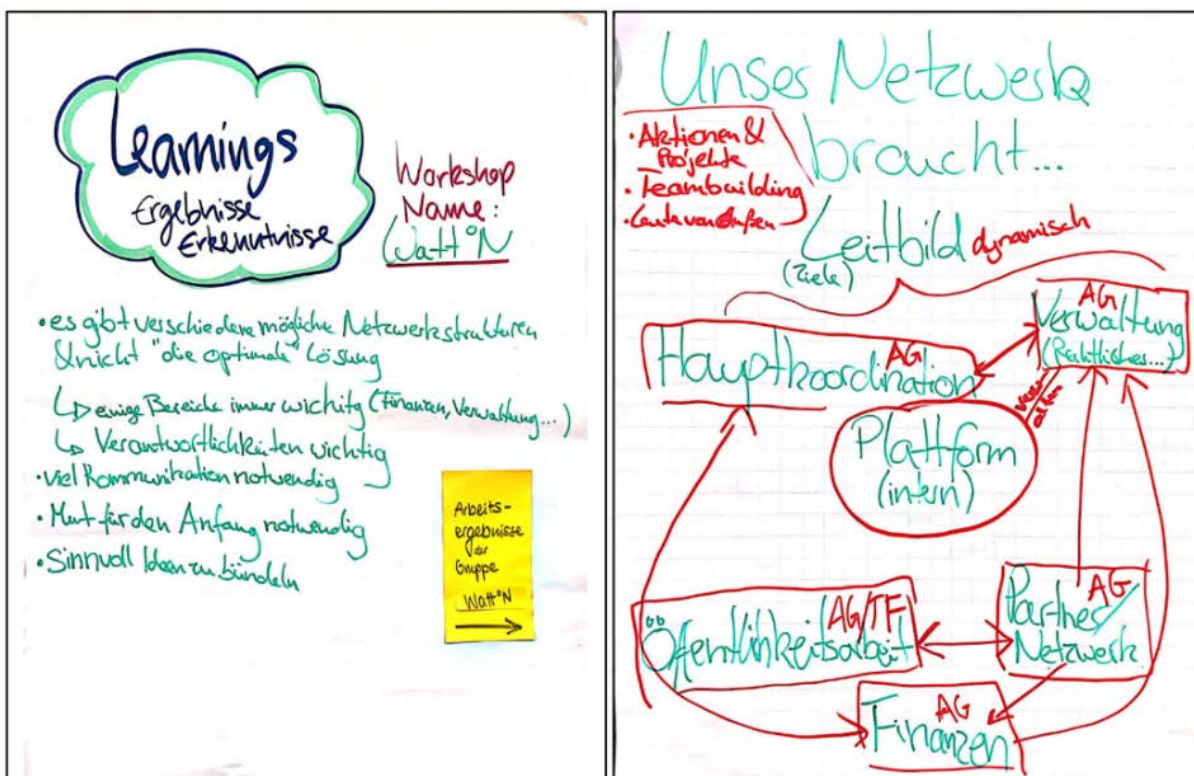 Learnings
Ergebnisse
Erkenntnisse
Workshop
Name:
Watt°N
• es gibt verschiedene mögliche Netzwerkstrukturen
& nicht "die optimale" Lösung
↳ einige Bereiche immer wichitg (Finanzen, Verwaltung...)
↳ Verantwortlichkeiten wichtig
• viel Kommunikation notwendig
• Mut für den Anfang notwendig
• Sinnvoll Ideen zu bündeln
Arbeits-
ergebnisse
der
Gruppe
Watt°N
Unser Netzwerk
braucht...
• Aktionen &
Projekte
• Teambuilding
• Leute von außen
Leitbild dynamisch
(Ziele)
AG
Hauptkoordination
AG
Verwaltung
(Rechtliches...)
Plattform
(intern)
AG/TF
Öffentlichkeitsarbeit
AG
Partner/
Netzwerk
AG
Finanzen